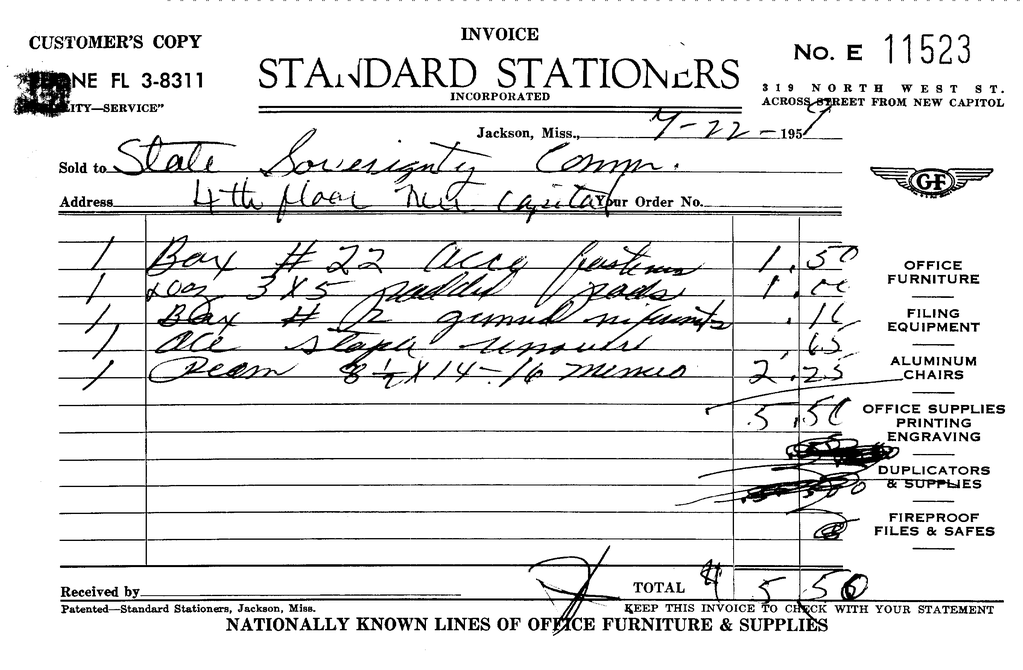 CUSTOMER'S COPY
INVOICE
No. E 11523
PHONE FL 3-8311
STANDARD STATIONERS
INCORPORATED
319 NORTH WEST ST.
ACROSS STREET FROM NEW CAPITOL
—SERVICE"
Jackson, Miss., 7-22-1959
Sold to State Soverignty Comm.
Address 4th floor New Capitol Your Order No.
GF
1 Box # 22 Acco fasteners 1.50
1 doz 3 X 5 padded pads 1.00
1 Box # 2 gummed .10
1 Ace staple remover .65
1 Ream 8 1/2 X 14-16 mimeo 2.25
5.50
OFFICE FURNITURE
FILING EQUIPMENT
ALUMINUM CHAIRS
OFFICE SUPPLIES
PRINTING
ENGRAVING
DUPLICATORS & SUPPLIES
FIREPROOF FILES & SAFES
Received by
TOTAL $ 5 50
Patented—Standard Stationers, Jackson, Miss.
KEEP THIS INVOICE TO CHECK WITH YOUR STATEMENT
NATIONALLY KNOWN LINES OF OFFICE FURNITURE & SUPPLIES